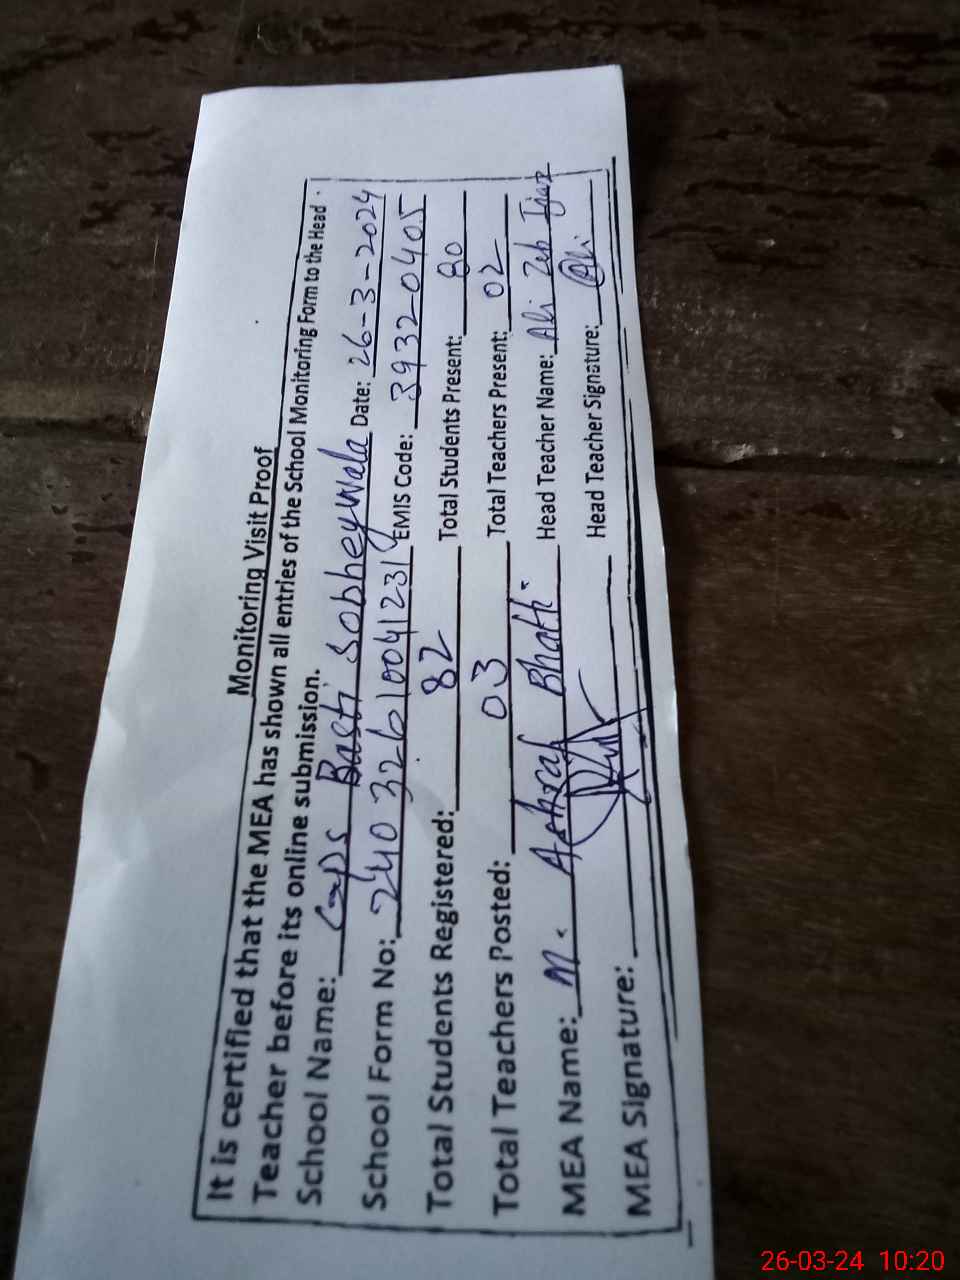 Monitoring Visit Proof
It is certified that the MEA has shown all entries of the School Monitoring Form to the Head
Teacher before its online submission.
School Name: GPS Basti Sobheywala Date: 26-3-2024
School Form No: 24032610041231 EMIS Code: 39320405
Total Students Registered: 82 Total Students Present: 80
Total Teachers Posted: 03 Total Teachers Present: 02
MEA Name: M. Ashraf Bhatti Head Teacher Name: Ali Zeb
MEA Signature: Head Teacher Signature: Ali
26-03-24 10:20